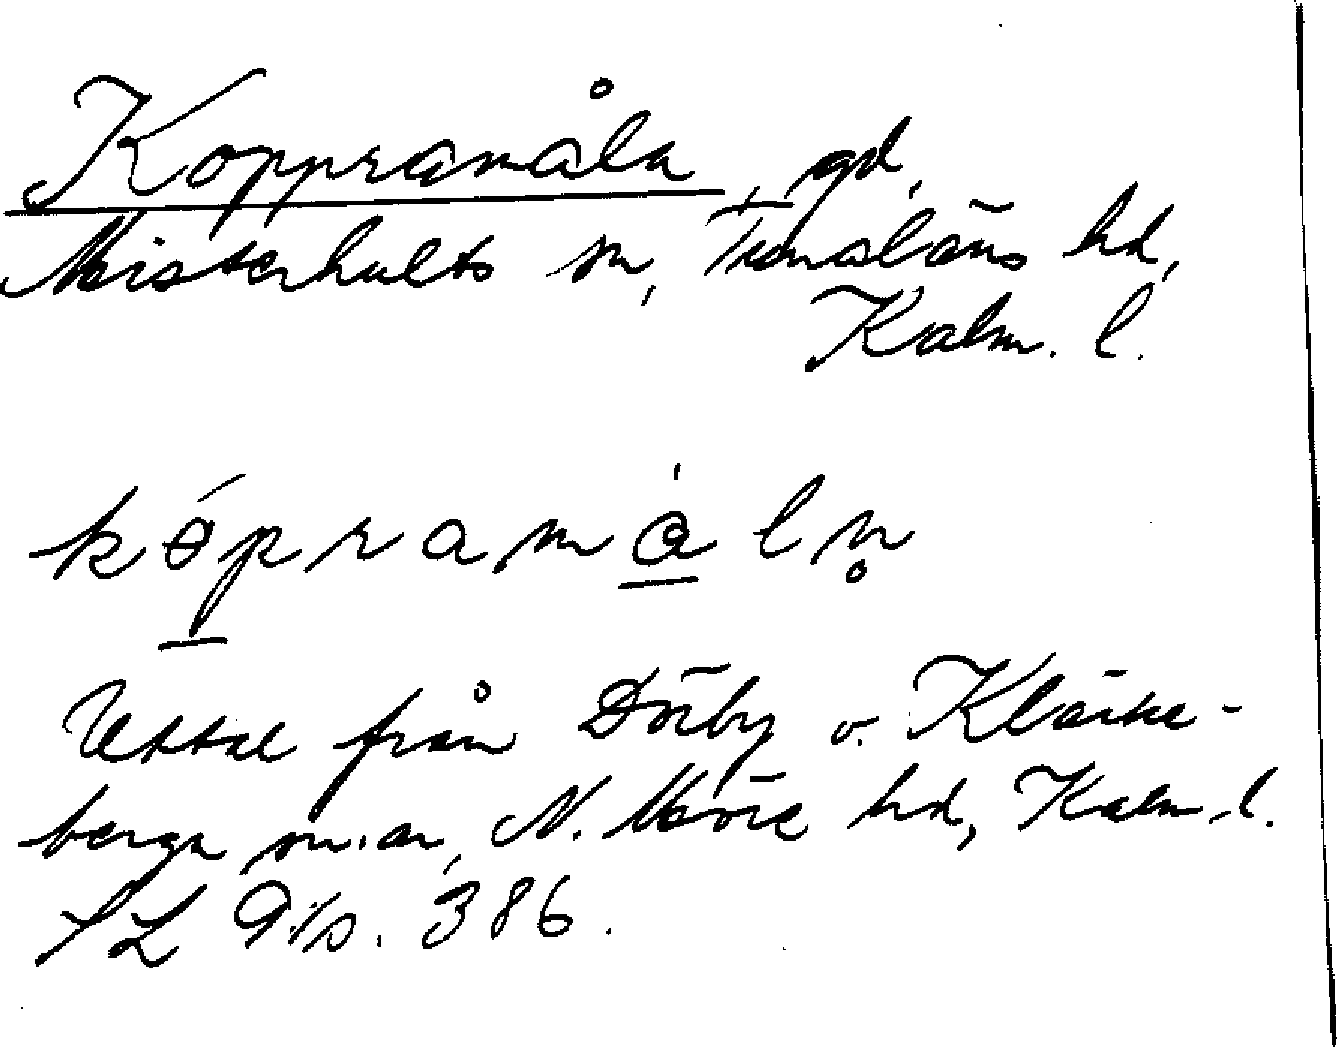 Koppramåla, gd,
Misterhults sn, Tunaläns hd,
Kalm. l.
köpramåln
Uttal från Dörby o. Kläcke-
berga sn:ar, N. Möre hd, Kalm. l.
386.